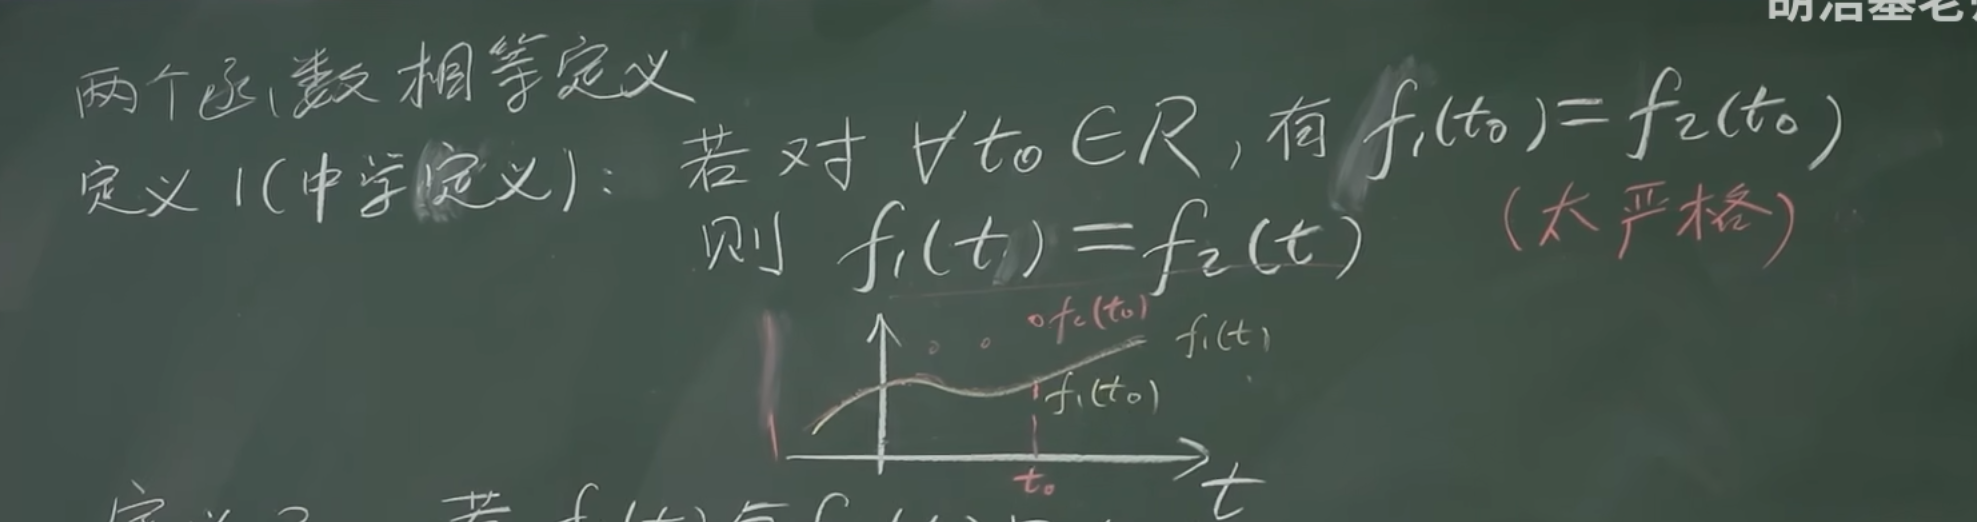 两个函数相等定义
定义1(中学定义): 若对 ∀t₀∈R, 有 f₁(t₀)=f₂(t₀)
则 f₁(t)=f₂(t) (太严格)
f₂(t₀)
f₁(t)
f₁(t₀)
t₀
t